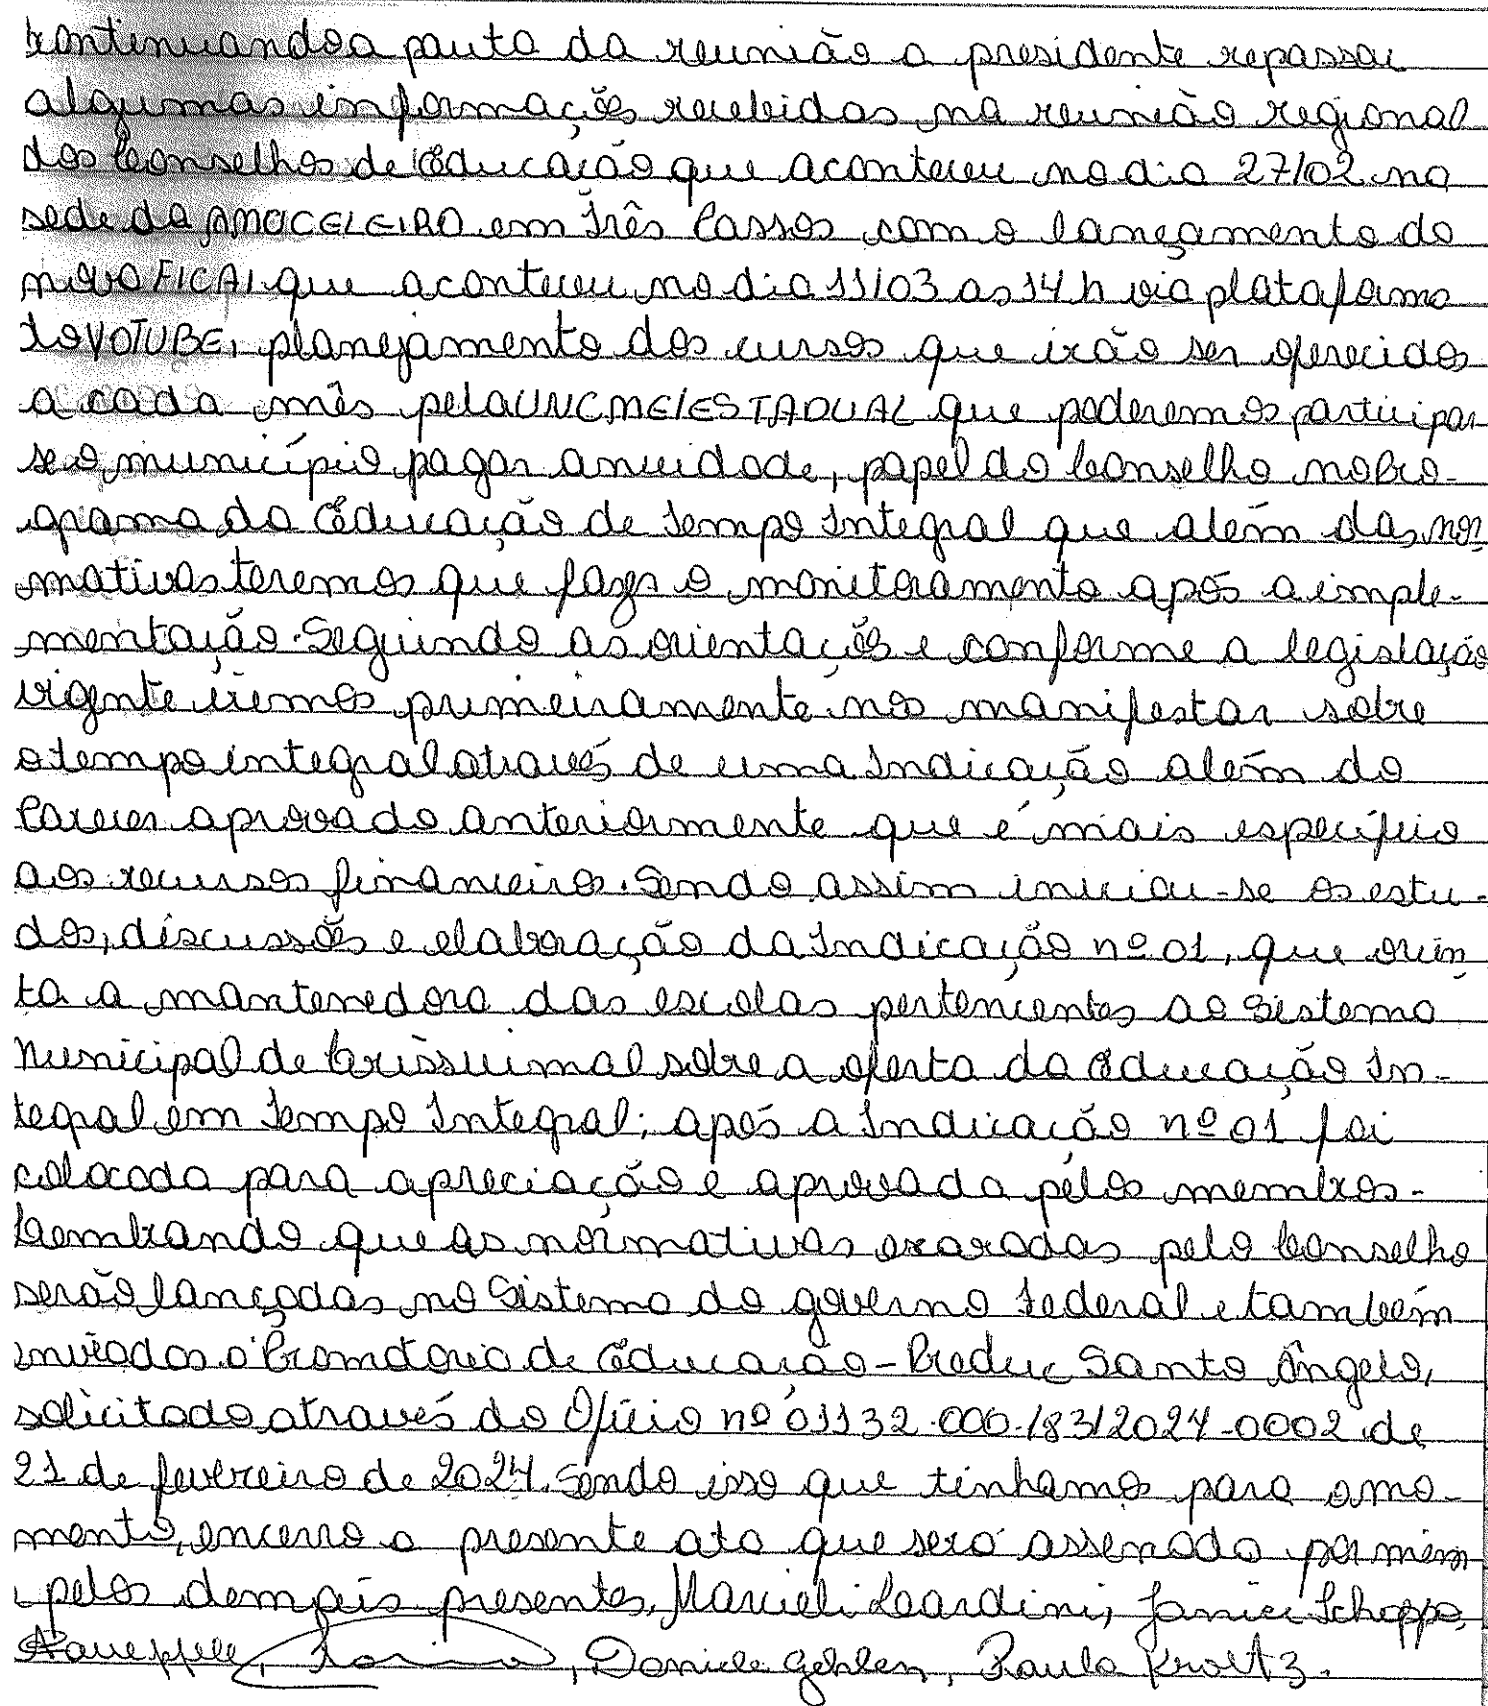 Continuando a pauta da reunião a presidente repassou
algumas informações recebidas na reunião regional
dos Conselhos de Educação que aconteceu no dia 27/02 na
sede da AMUCELEIRO em Três Passos com o lançamento do
novo FICAI que aconteceu no dia 11/03 as 14h via plataforma
do YOTUBE, planejamento dos cursos que irão ser oferecidos
a cada mês pela UNCME/ESTADUAL que poderemos participar
se o município pagar anuidade, papel do Conselho no Pro-
grama da Educação de Tempo Integral que além das nor-
mativas teremos que fazer o monitoramento após a imple-
mentação. Seguindo as orientações e conforme a legislação
vigente iremos primeiramente nos manifestar sobre
o tempo integral através de uma Indicação além do
Parecer aprovado anteriormente que é mais específico
aos recursos financeiros. Sendo assim iniciou-se os estu-
dos, discussões e elaboração da Indicação nº 01, que orien
ta a mantenedora das escolas pertencentes ao Sistema
Municipal de Crissiumal sobre a oferta da Educação In-
tegral em Tempo Integral; após a Indicação nº 01 foi
colocada para apreciação e aprovada pelos membros.
Lembrando que as normativas exaradas pelo Conselho
serão lançadas no Sistema do governo Federal e também
enviadas a Promotoria de Educação - Preduc Santo Ângelo,
solicitado através do Ofício nº 01132.000.183/2024-0002 de
21 de fevereiro de 2024. Sendo isso que tinhamos para o mo-
mento, encerro a presente ata que será assinada por mim
e pelos demais presentes. Marcieli Leardini, Janice Schopp,
, Daniele Gehlen, Paula Kroltz.